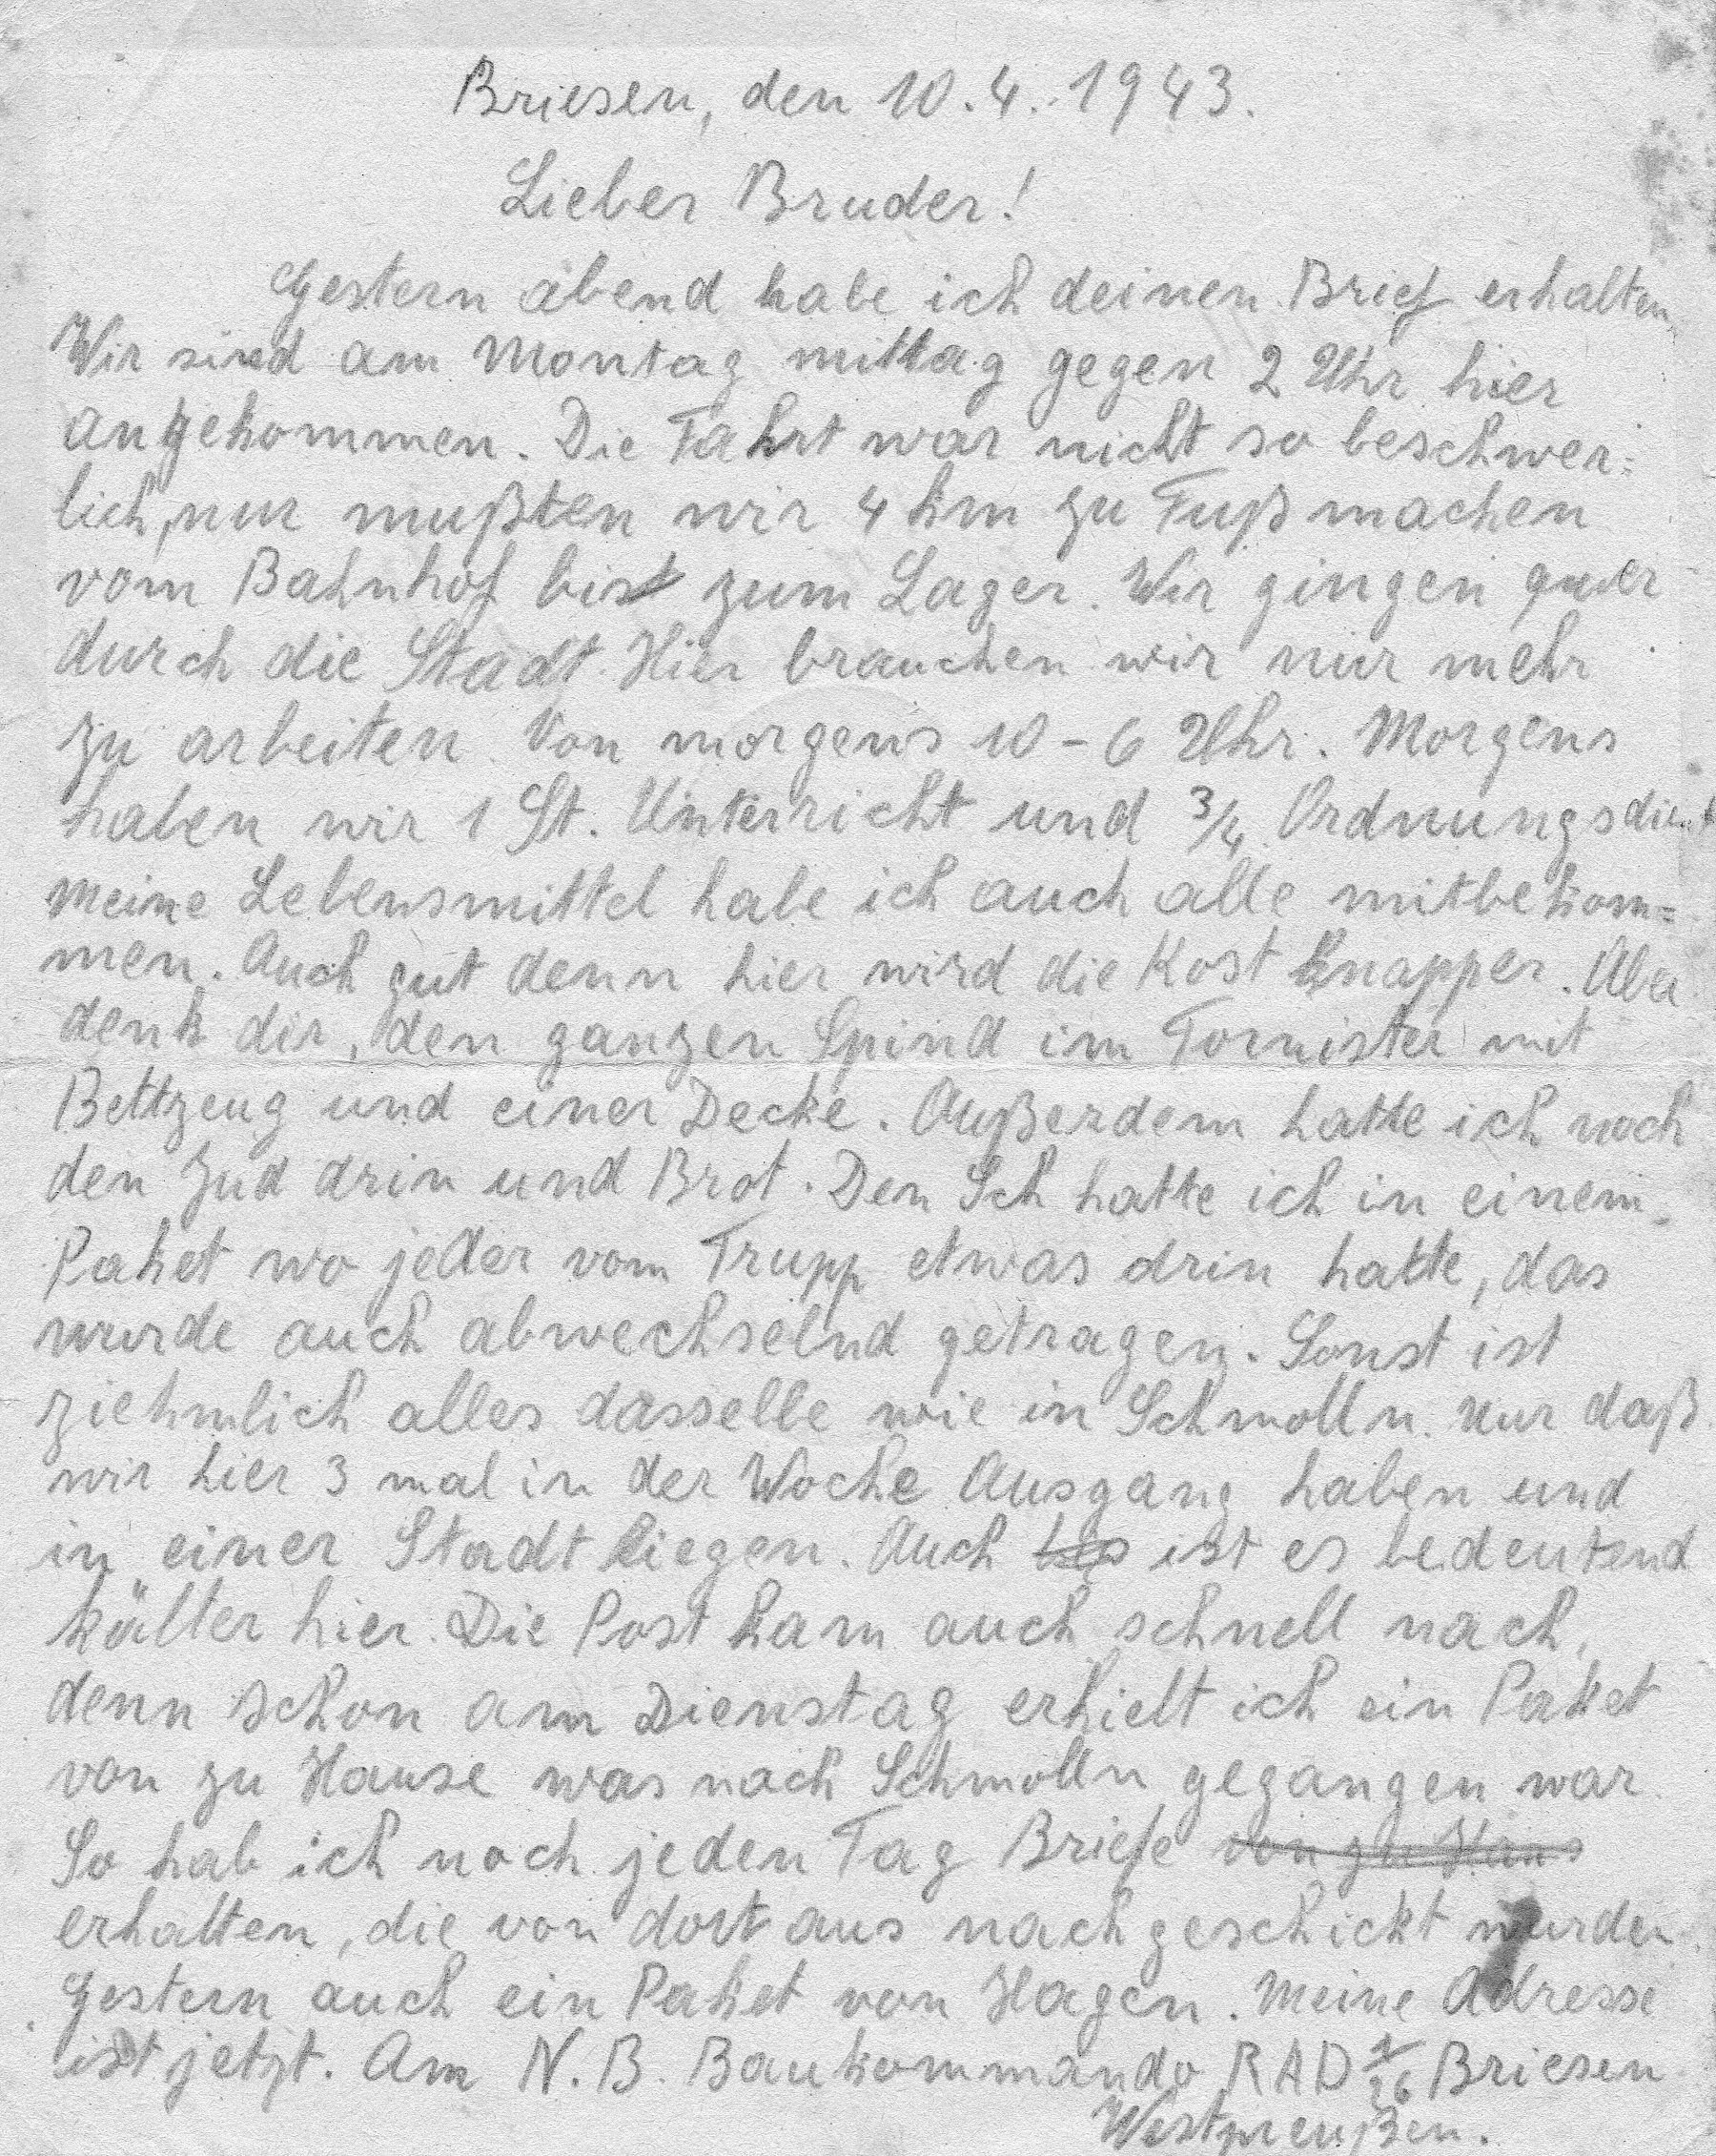 Briesen, den 10.4.1943.
Lieber Bruder!
Gestern abend habe ich deinen Brief erhalten.
Wir sind am Montag mittag gegen 2 Uhr hier
angekommen. Die Fahrt war nicht so beschwer=
lich, nur mußten wir 4 km zu Fuß machen
vom Bahnhof bis zum Lager. Wir gingen quer
durch die Stadt. Hier brauchen wir nur mehr
zu arbeiten. Von morgens 10 - 6 Uhr. Morgens
haben wir 1 St. Unterricht und 3/4 Ordnungsdienst
meine Lebensmittel habe ich auch alle mitbekom=
men. Auch gut denn hier wird die Kost knapper. Aber
denk dir, den ganzen Spind im Tornister mit
Bettzeug und einer Decke. Außerdem hatte ich noch
den Zud drin und Brot. Den Sch hatte ich in einem
Paket wo jeder vom Trupp etwas drin hatte, das
wurde auch abwechselnd getragen. Sonst ist
ziehmlich alles dasselbe wie in Schmolln. Nur daß
wir hier 3 mal in der Woche Ausgang haben und
in einer Stadt liegen. Auch ist es bedeutend
kälter hier. Die Post kam auch schnell nach,
denn schon am Dienstag erhielt ich ein Paket
von zu Hause was nach Schmolln gegangen war.
So hab ich noch jeden Tag Briefe von zu Haus
erhalten, die von dort aus nachgeschickt wurden.
Gestern auch ein Paket von Hagen. Meine Adresse
ist jetzt. Am N.B. Baukommando RAD 1/26 Briesen
Westpreußen.